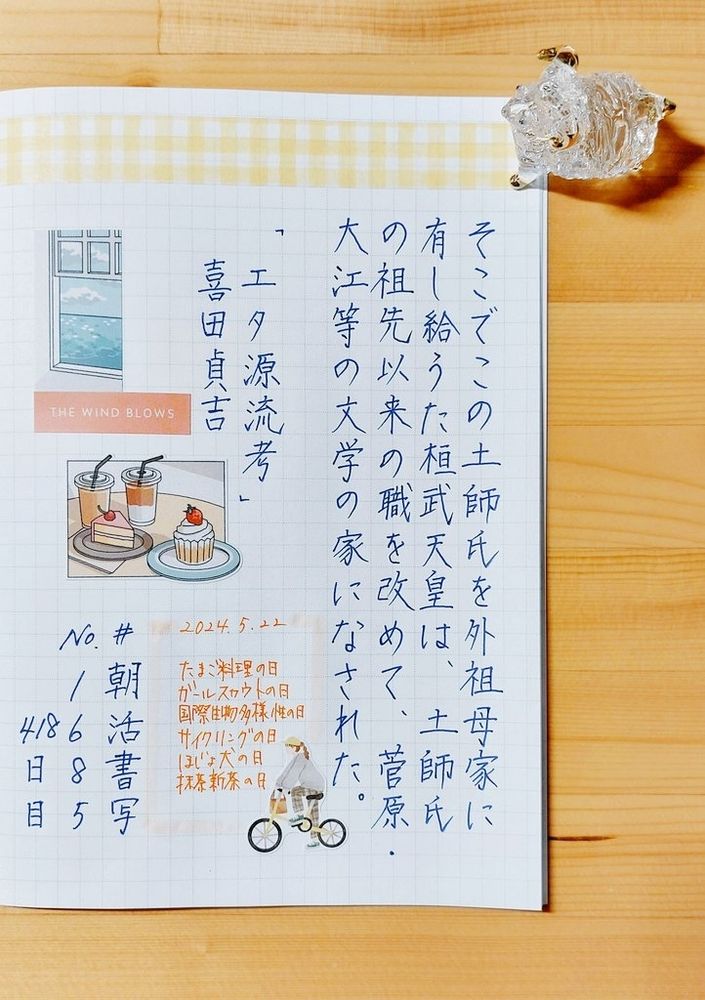 そこでこの土師氏を外祖母家に
有し給うた桓武天皇は、土師氏
の祖先以来の職を改めて、菅原・
大江等の文学の家になされた。
「エタ源流考」
喜田貞吉
THE WIND BLOWS
2024.5.22
たまご料理の日
ガールスカウトの日
国際生物多様性の日
サイクリングの日
ほじょ犬の日
抹茶新茶の日
#朝活書写
No.1685
418日目